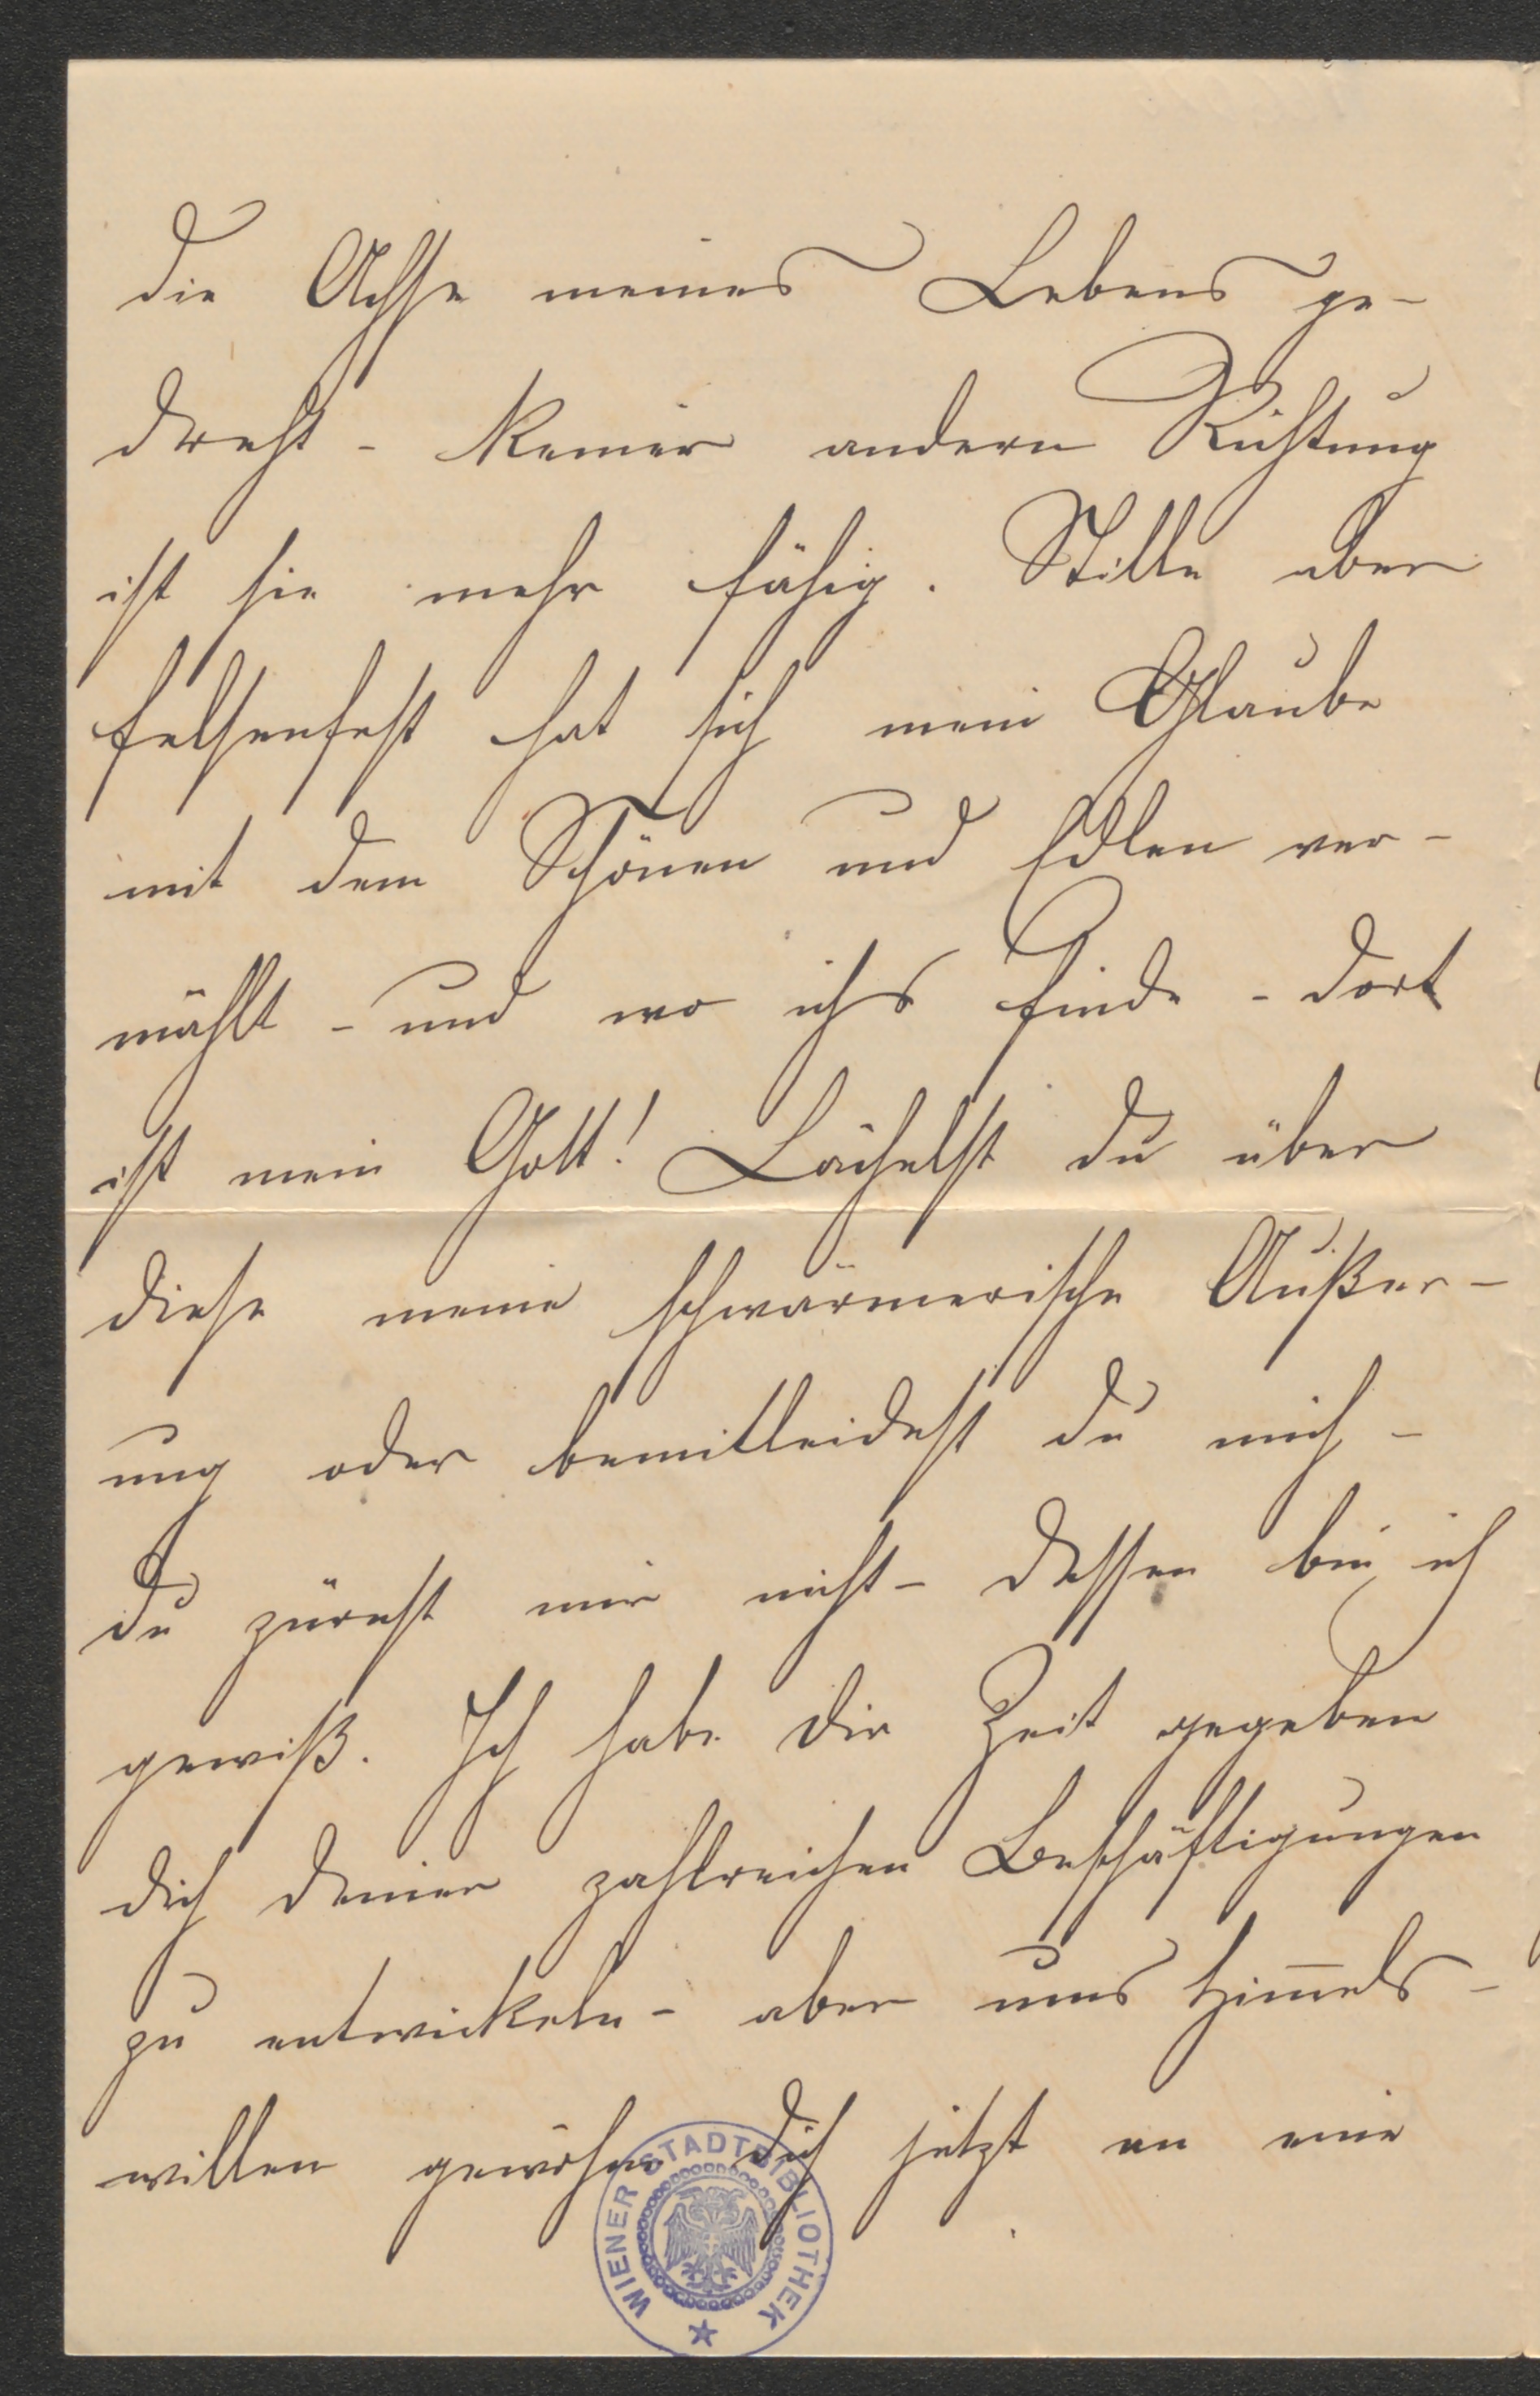 die Achse meines Lebens ge-
dreht - keiner andern Richtung
ist sie mehr fähig. Stille aber
felsenfest hat sich mein Glaube
mit dem Schönen und Edlen ver-
mählt - und wo ichs finde - dort
ist mein Gott! Lächelst du über
diese meine schwärmerische Äußer-
ung oder bemitleidest du mich -
du zürnst mir nicht - dessen bin ich
gewiß. Ich habe dir Zeit gegeben
dich deinen zahlreichen Beschäftigungen
zu entwickeln - aber ums Him̅els-
willen gewöhne dich jetzt an eine
WIENER STADTBIBLIOTHEK